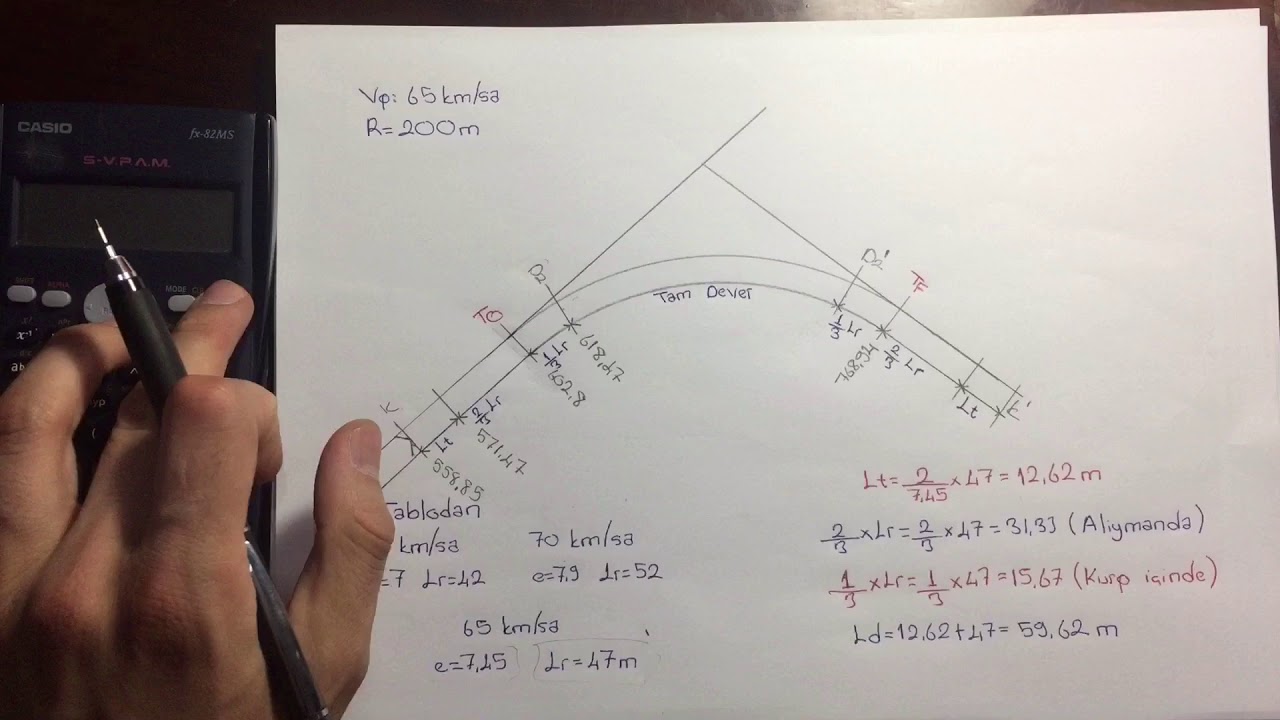 CASIO
fx-82MS
S-V.P.A.M.
SHIFT
ALPHA
MODE
Vp: 65 km/sa
R=200m
D2
TO
Tam Dever
D2'
TF
1/3 Lr
618,47
602,8
1/3 Lr
768,94
2/3 Lr
K
Lt
2/3 Lr
571,47
558,85
Lt
K'
Tablodan
km/sa
70 km/sa
=7 Lr=42
e=7,9 Lr=52
65 km/sa
e=7,45 Lr=47m
Lt=2/7,45×47=12,62 m
2/3×Lr=2/3×47=31,33 (Aliymanda)
1/3×Lr=1/3×47=15,67 (Kurp içinde)
Ld=12,62+47=59,62 m